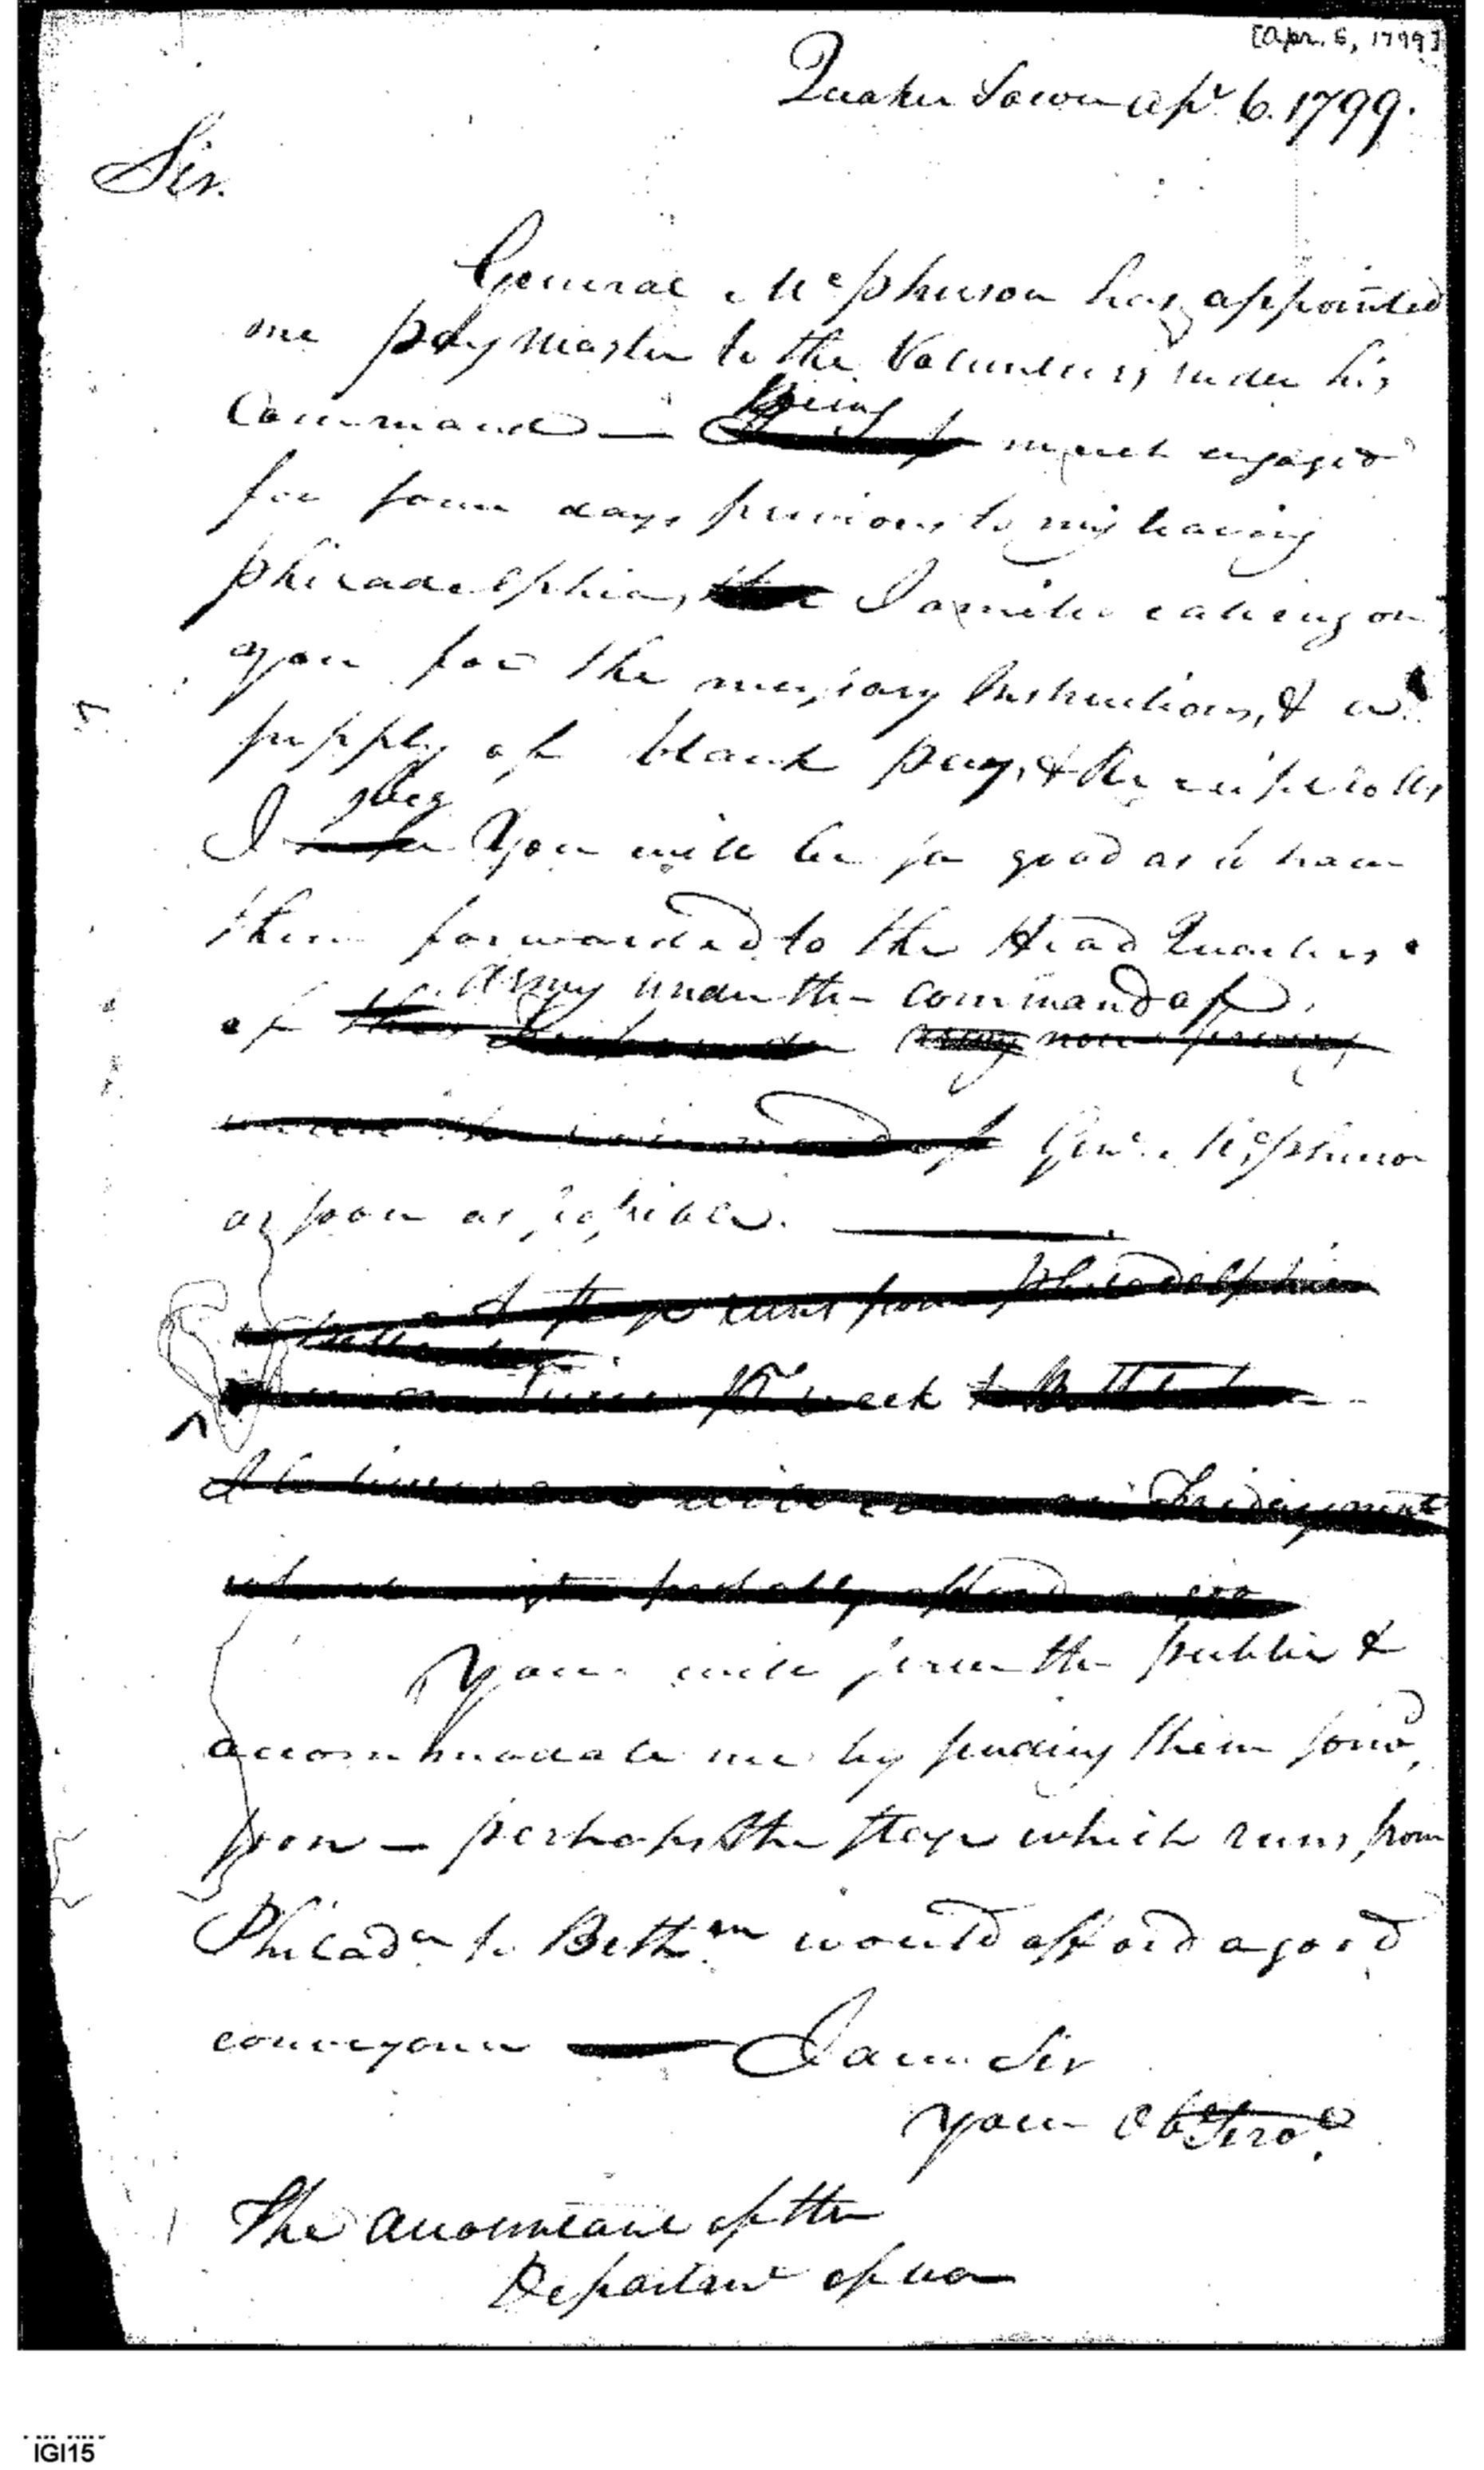 [Apr. 6, 1799]
Quaker Town Apr. 6. 1799.
Sir.
General McPherson has appointed
me paymaster to the Volunteers under his
Being
Command — much engaged
for some days previous to my leaving
Philadelphia, I omitted calling on
you for the necessary Instructions, & a
supply of blank pay, & Receipt rolls
beg
I You will be so good as to have
them forwarded to the Head Quarters
Army under the command of
of the now
Genl. McPherson
as soon as possible.
stage runs from Philadelphia
to Bethlehem
twice pr week to Bethlehem
will
probably afford
You will serve the public &
accommodate me by sending them forwd,
soon — perhaps the stage which runs from
Philada to Bethm would afford a good
conveyance — I am Sir
your Obt Servt.
The Accountant of the
Departmt of War
IGI15